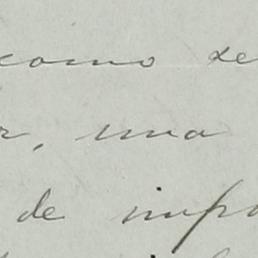 como de
r, una
de impo